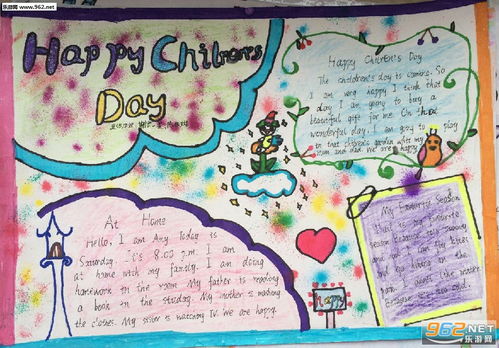 乐游网 www.962.net
Happy Chilbren's
Day
Happy Chilbren's Day
The children's day is coming. So
I am very happy I think that
day I am going to buy a
beautiful gift for me. On
wonderful day. I am going to play
in that children's garden after my
mum and dad. We are happy.
At Home
Hello, I am Amy Today is
Saturday. It's 8:00 p.m. I am
at home with my family. I am doing
homework in the room. My father is reading
a book in the study. My mother is washing
the clothes. My sister is watching TV. We are happy.
My Favourite Season
What is your favourite
season Because it's sunny
and I can fly kites
in the
Happy
962.NET
乐游网